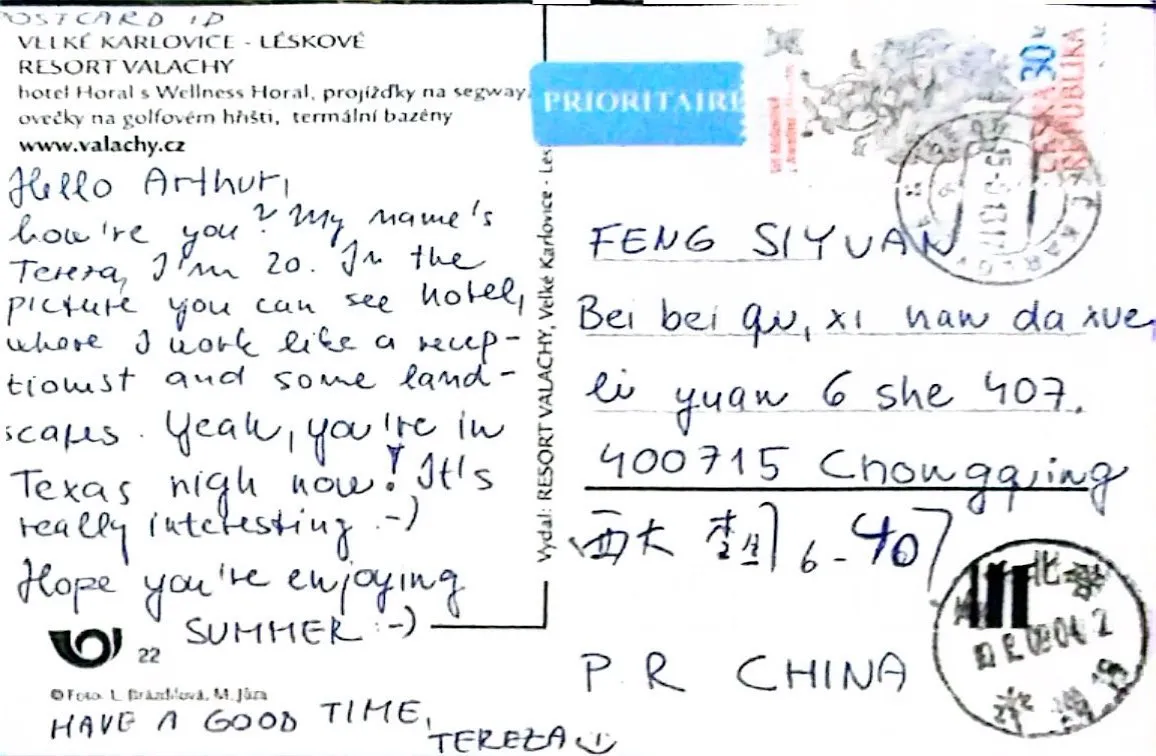 POSTCARD ID
VELKÉ KARLOVICE - LÉSKOVÉ
RESORT VALACHY
hotel Horal s Wellness Horal, projížďky na segway,
ovečky na golfovém hřišti, termální bazény
www.valachy.cz
Hello Arthur,
how're you? My name's
Tereza, I'm 20. In the
picture you can see hotel,
where I work like a recep-
tionist and some land-
scapes. Yeah, you're in
Texas nigh now! It's
really interesting :-)
Hope you're enjoying
SUMMER :-)
22
©Foto: L. Brázdilová, M. Jůza
HAVE A GOOD TIME,
TEREZA
Vydal: RESORT VALACHY, Velké Karlovice - Les
PRIORITAIRE
30
ČESKÁ
REPUBLIKA
FENG SIYUAN
Bei bei qu, xi nan da xue
li yuan 6 she 407.
400715 Chongqing
西大 李园 6-407
P.R CHINA
北